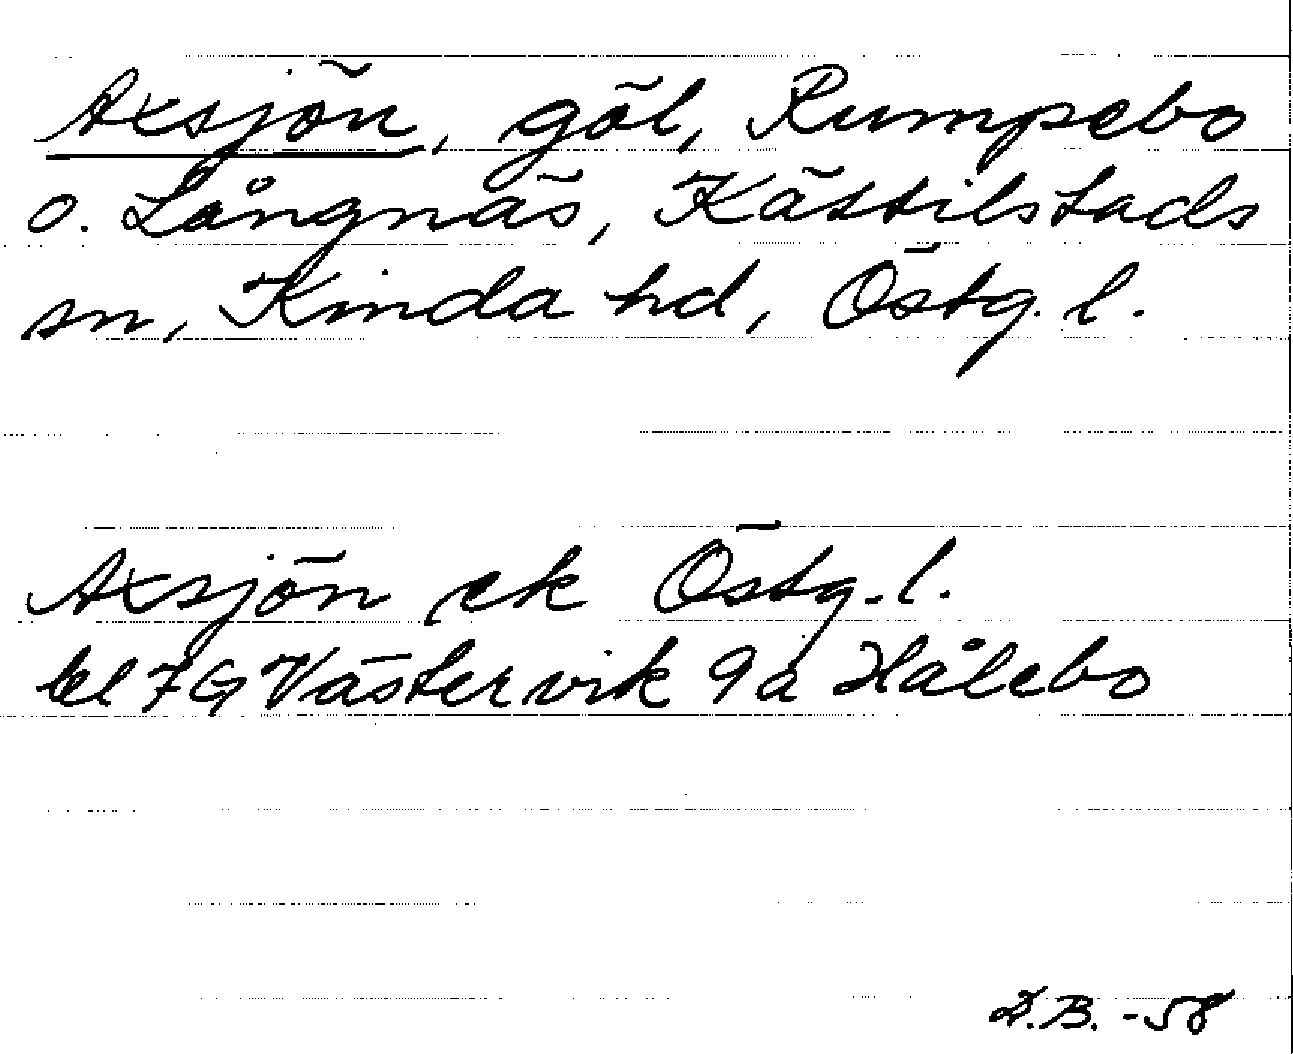 Axsjön, göl, Rumpebo
o. Långnäs, Kättilstads
sn, Kinda hd, Östg. l.
Axsjön ek Östg. l.
bl 7G Västervik 9a Hålebo
D.B. -58